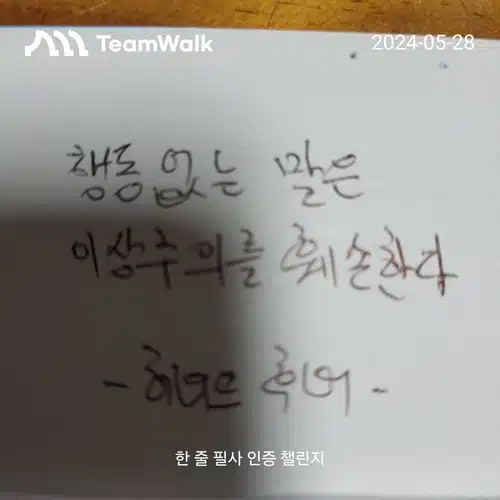 TeamWalk
2024-05-28
행동 없는 말은
이상주의를 훼손한다
- 허버트 후버 -
한 줄 필사 인증 챌린지